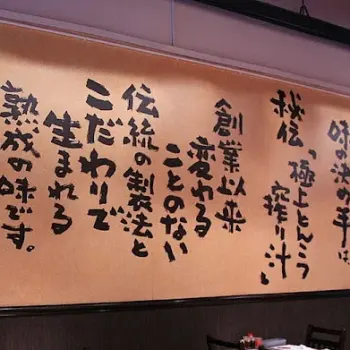 味の決め手は、
秘伝「極上とんこつ
搾り汁」
創業以来
変わる
ことのない
伝統の製法と
こだわりで
生まれる
熟成の味です。